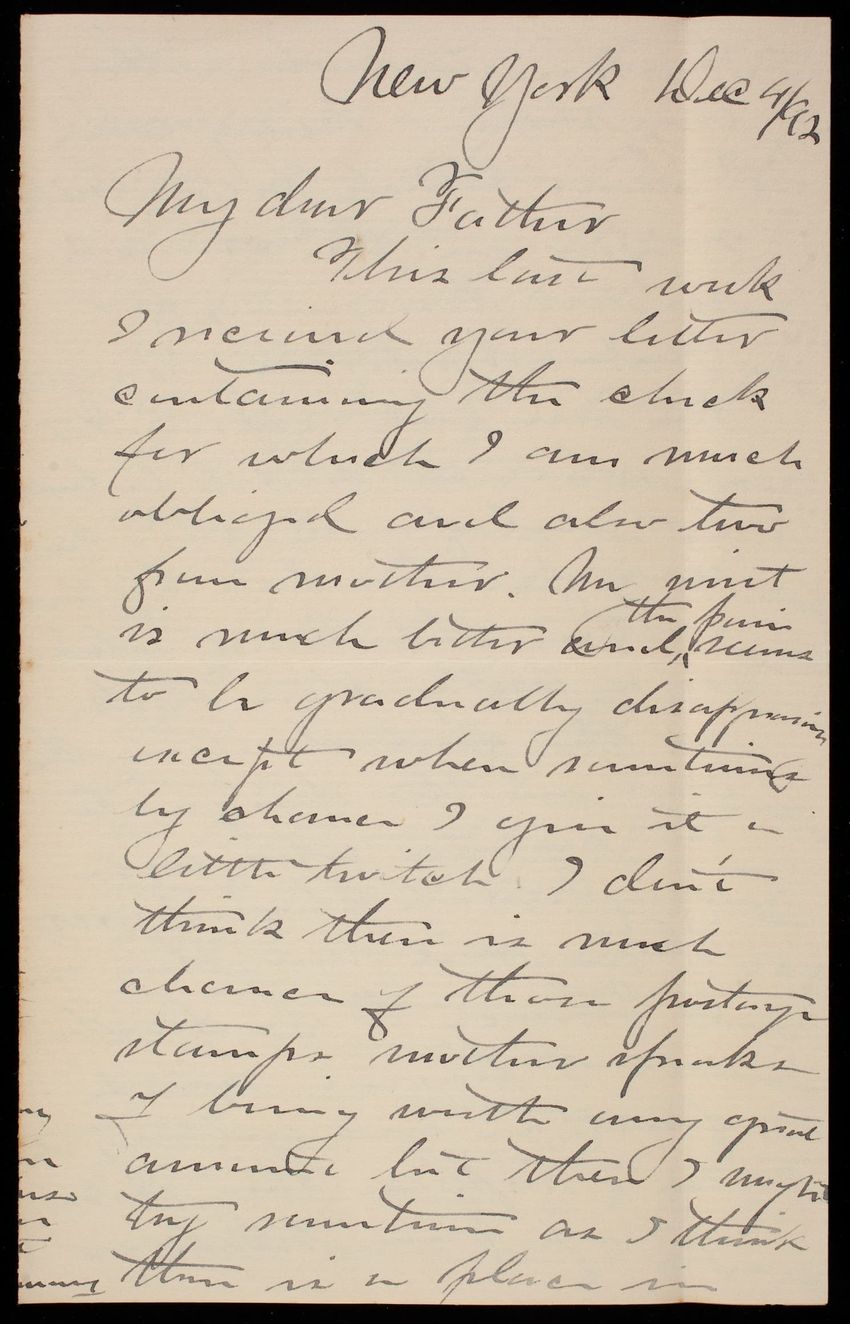 New York Dec 4/92
My dear Father
This last week
I received your letter
containing the check
for which I am much
obliged and also two
from mother. My wrist
is much better and, the pain seems
to be gradually disappearing
except when sometimes
by chance I give it a
little twitch. I don't
think there is much
chance of those postage
stamps mother speaks
of being worth any great
amount but then I might
try sometime as I think
there is a place in